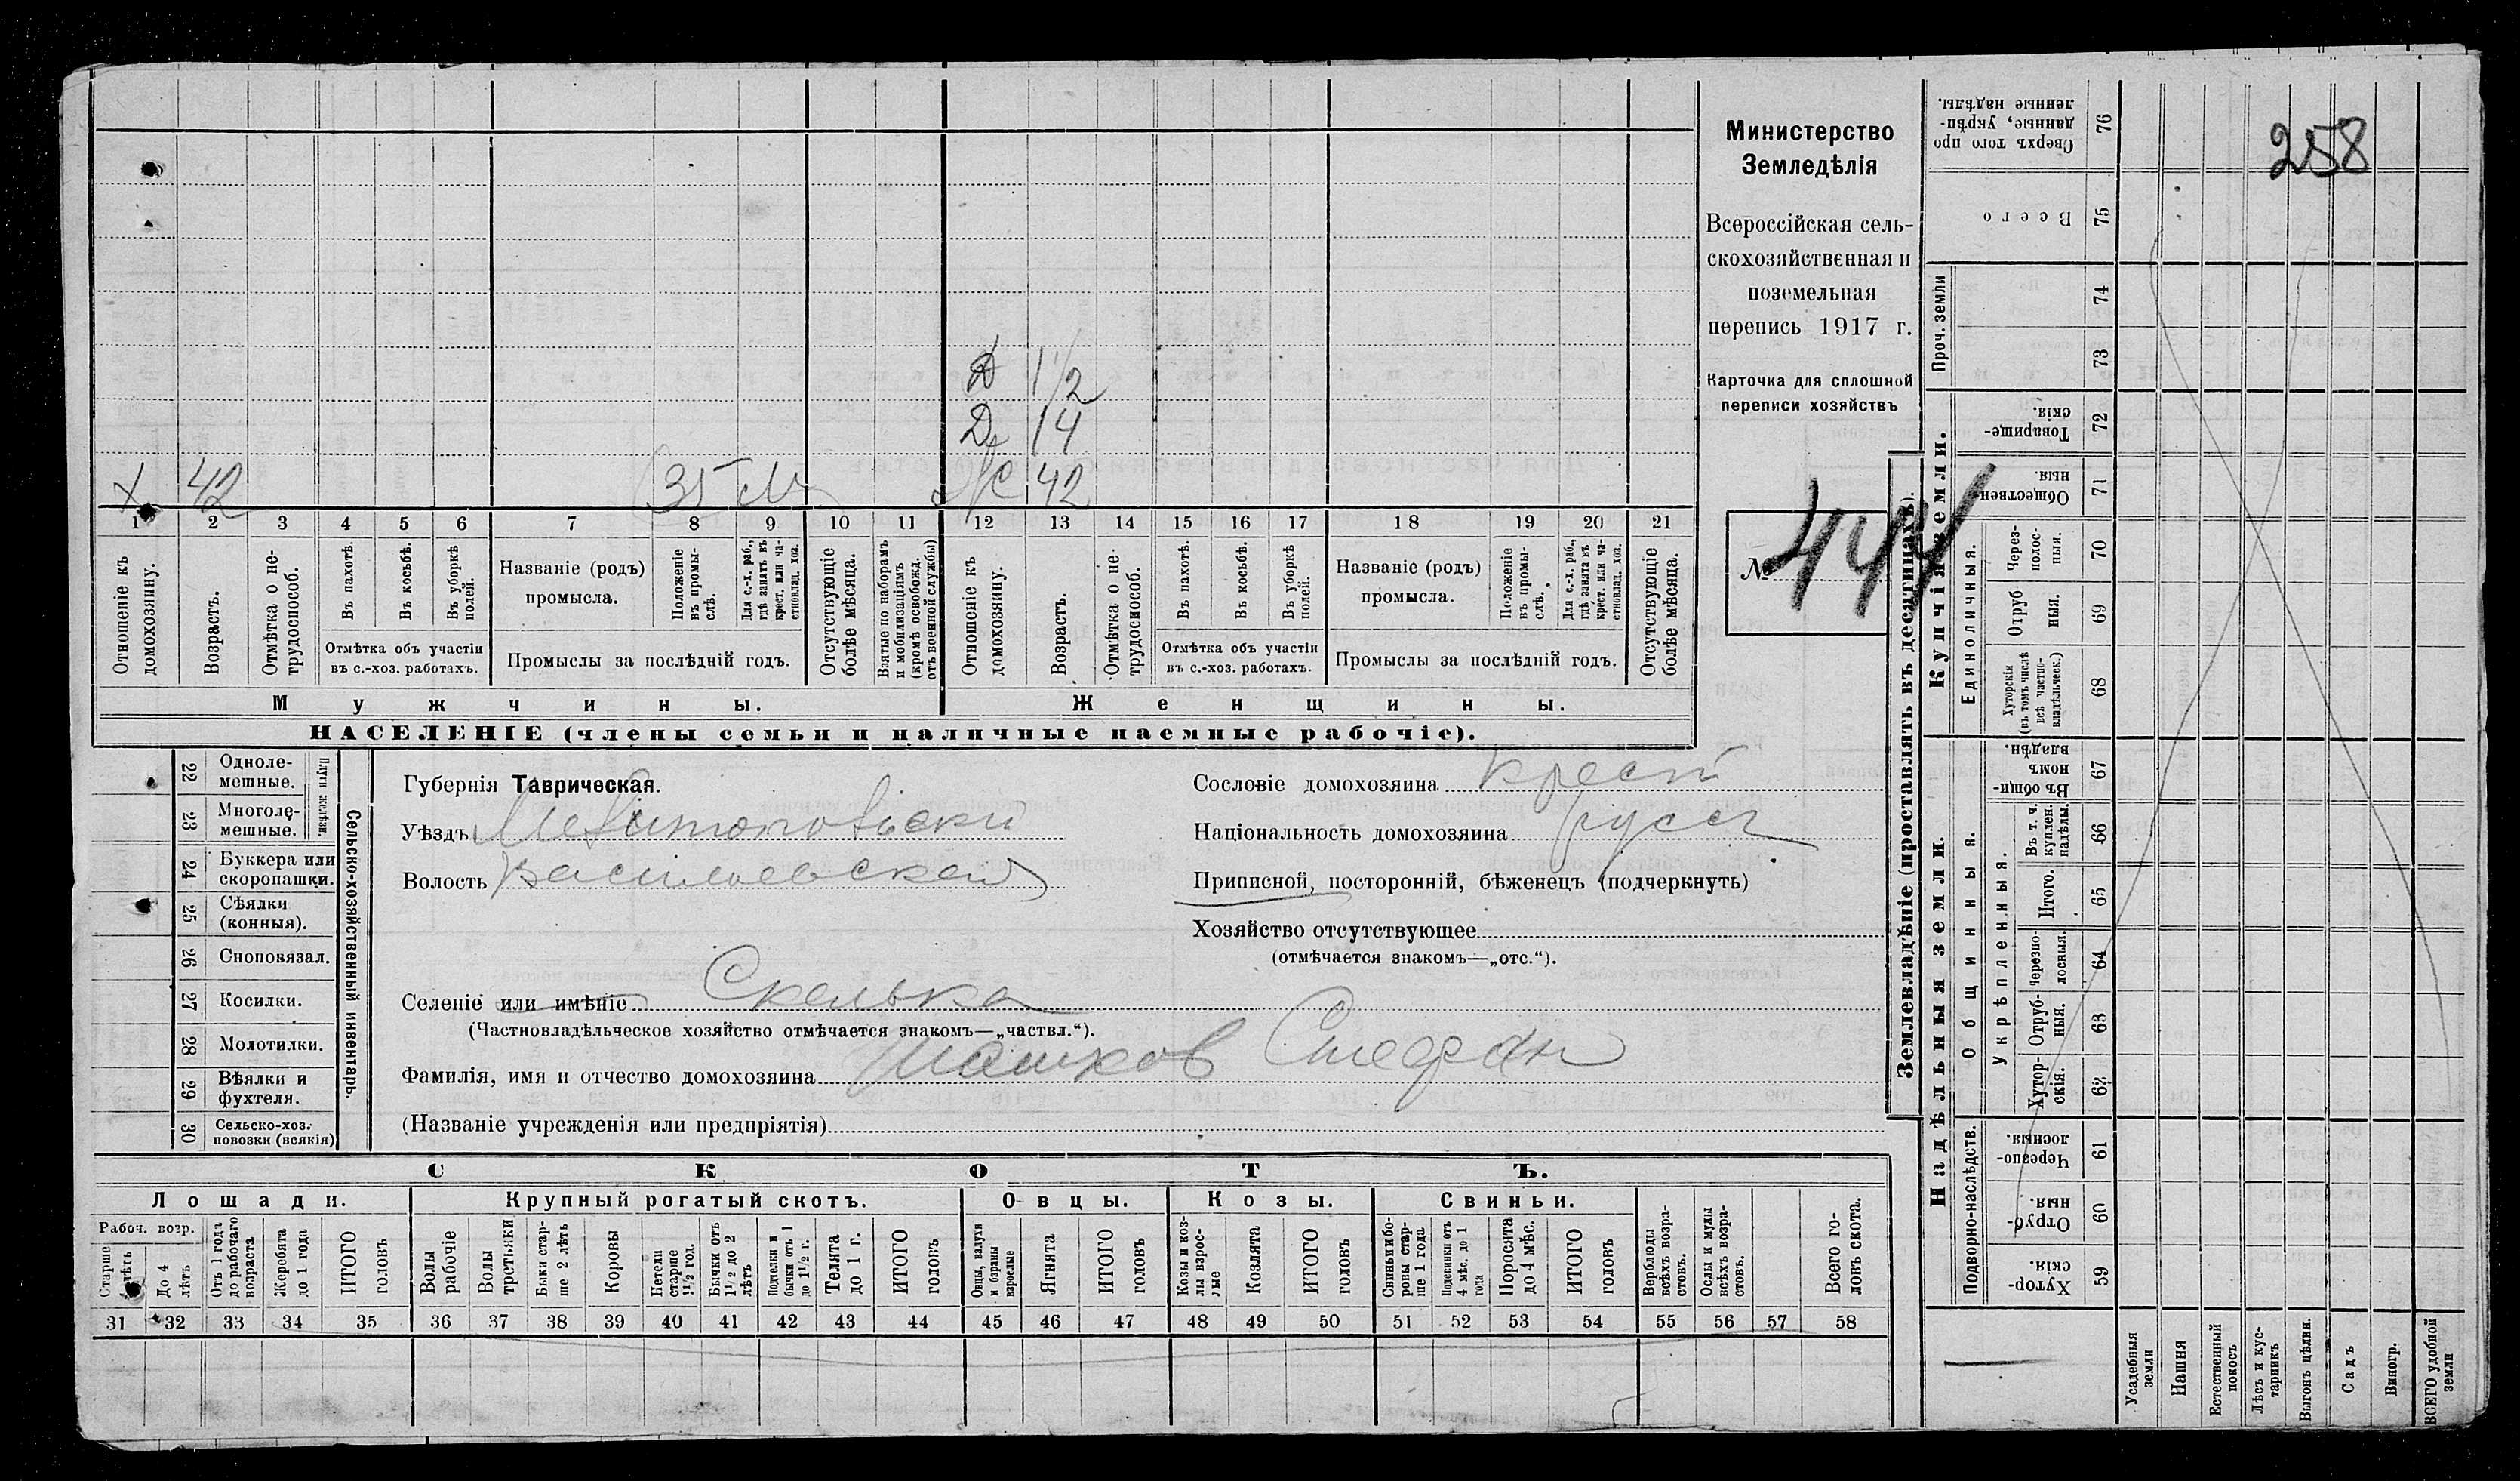 258
Министерство
Земледѣлія
Всероссійская сель-
скохозяйственная и
поземельная
перепись 1917 г.
Карточка для сплошной
переписи хозяйствъ
№ 444
Д 1/2
Д 14
Х 42
35
Ж 42
1 2 3 4 5 6 7 8 9 10 11 12 13 14 15 16 17 18 19 20 21
Отношеніе къ домохозяину.
Возрастъ.
Отмѣтка о не-трудоспособ.
Въ пахотѣ.
Въ косьбѣ.
Въ уборкѣ полей.
Отмѣтка объ участіи
въ с.-хоз. работахъ.
Названіе (родъ)
промысла.
Положеніе въ промы-слѣ.
Для с.-х. раб., гдѣ занятъ въ крест. или ча-стновлад. хоз.
Промыслы за послѣдній годъ.
Отсутствующіе болѣе мѣсяца.
Взятые по наборамъ и мобилизаціямъ (кромѣ освобожд. отъ военной службы)
Отношеніе къ домохозяину.
Возрастъ.
Отмѣтка о не-трудоспособ.
Въ пахотѣ.
Въ косьбѣ.
Въ уборкѣ полей.
Отмѣтка объ участіи
въ с.-хоз. работахъ.
Названіе (родъ)
промысла.
Положеніе въ промы-слѣ.
Для с.-х. раб., гдѣ занята въ крест. или ча-стновлад. хоз.
Промыслы за послѣдній годъ.
Отсутствующіе болѣе мѣсяца.
Мужчины.
Женщины.
НАСЕЛЕНІЕ (члены семьи и наличные наемные рабочіе).
22 Одноле-мешные.
23 Многоле-мешные.
Плуги желѣзн.
24 Буккера или скоропашки.
25 Сѣялки (конныя).
26 Сноповязал.
27 Косилки.
28 Молотилки.
29 Вѣялки и фухтеля.
30 Сельско-хоз. повозки (всякія)
Сельско-хозяйственный инвентарь.
Губернія Таврическая.
Уѣздъ Мелитопольскій
Волость Васильевская
Селеніе или имѣніе Скелька
(Частновладѣльческое хозяйство отмѣчается знакомъ—„частвл.“).
Фамилія, имя и отчество домохозяина Стефан
(Названіе учрежденія или предпріятія)
Сословіе домохозяина крест
Національность домохозяина русск
Приписной, посторонній, бѣженецъ (подчеркнуть)
Хозяйство отсутствующее
(отмѣчается знакомъ—„отс.“).
СКОТЪ.
Лошади.
Крупный рогатый скотъ.
Овцы.
Козы.
Свиньи.
Рабоч. возр.
Старше лѣтъ
До 4 лѣтъ
Отъ 1 года до рабочаго возраста
Жеребята до 1 года
ИТОГО головъ
Волы рабочіе
Волы третьяки
Быки стар-ше 2 лѣтъ
Коровы
Нетели старше 1½ год.
Бычки отъ 1½ до 2 лѣтъ
Подтелки и бычки отъ 1 до 1½ г.
Телята до 1 г.
ИТОГО головъ
Овцы, валухи и бараны взрослые
Ягнята
ИТОГО головъ
Козы и коз-лы взрос-лые
Козлята
ИТОГО головъ
Свиньи и бо-ровы стар-ше 1 года
Подсвинки отъ 4 мѣс. до 1 года
Поросята до 4 мѣс.
ИТОГО головъ
Верблюды всѣхъ возра-стовъ.
Ослы и мулы всѣхъ возра-стовъ.
Всего го-ловъ скота.
31 32 33 34 35 36 37 38 39 40 41 42 43 44 45 46 47 48 49 50 51 52 53 54 55 56 57 58
Землевладѣніе (проставлять въ десятинахъ).
Купчія земли.
Надѣльныя земли.
Сверхъ того про-данные, укрѣп-ленные надѣлы. 76
Всего 75
Проч. земли 74
73
Товарище-скія. 72
Обществен-ныя. 71
Единоличныя.
Через-полос-ныя. 70
Отруб-ныя. 69
Хуторскія (въ томъ числѣ всѣ частно-владѣльческ.) 68
Общинныя.
Въ общи-номъ владѣн. 67
Укрѣпленныя.
Въ т. ч. куплен. надѣлы. 66
Итого. 65
Черезпо-лосныя. 64
Отруб-ныя. 63
Хутор-скія. 62
Подворно-наслѣдств.
Черезпо-лосныя. 61
Отруб-ныя. 60
Хутор-скія. 59
Усадебныя земли
Пашня
Естественный покосъ
Лѣсъ и кус-тарникъ
Выгонъ цѣлин.
Садъ
Виногр.
ВСЕГО удобной земли